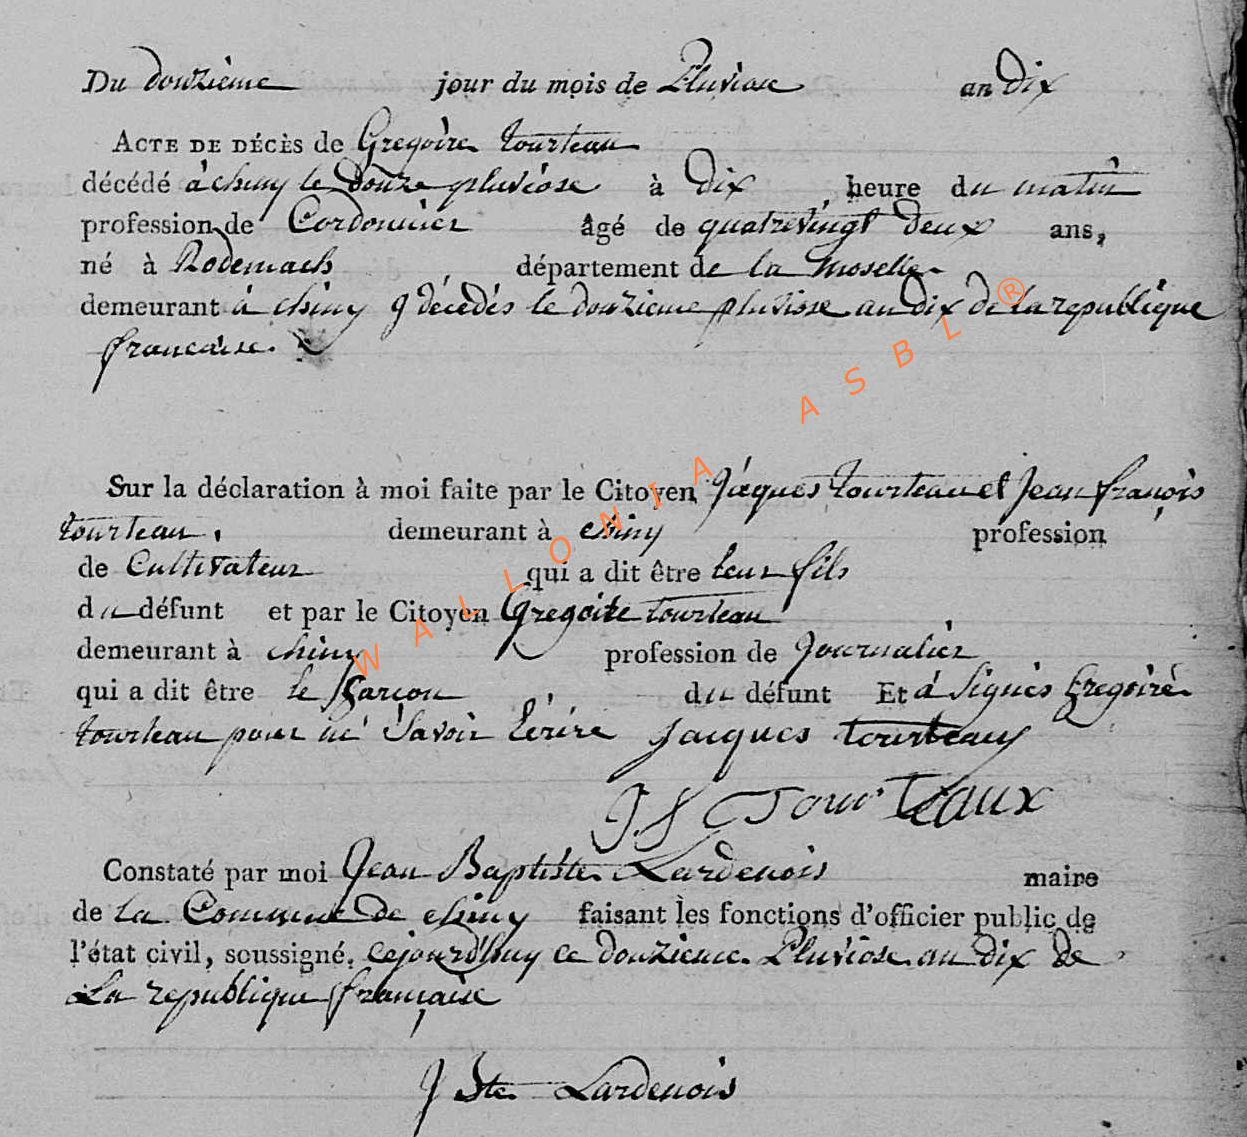 Du douzieme jour du mois de Pluviose an Dix
ACTE DE DÉCÈS de Gregoire tourteau
décédé à chiny le douze pluviose à Dix heure du matin
profession de Cordonnier âgé de quatrevingt deux ans,
né à Rodemach département de la Moselle
demeurant à chiny décédés le douzieme pluviose an Dix de la republique
francaise.
Sur la déclaration à moi faite par le Citoyen Jacques tourteau et Jean françois
tourteau, demeurant à chiny profession
de Cultivateur qui a dit être leur fils
du défunt et par le Citoyen Gregoire tourteau
demeurant à chiny profession de Journalier
qui a dit être le garçon du défunt Et à Signés Gregoire
tourteau pour né Savoir Ecrire Jacques tourteau
J f Tourteaux
Constaté par moi Jean Baptiste Lardenois maire
de la Commune de chiny faisant les fonctions d'officier public de
l'état civil, soussigné. cejourd'huy ce douzieme Pluviose an dix de
La republique française
J Bte Lardenois
WALLONIA ASBL ®